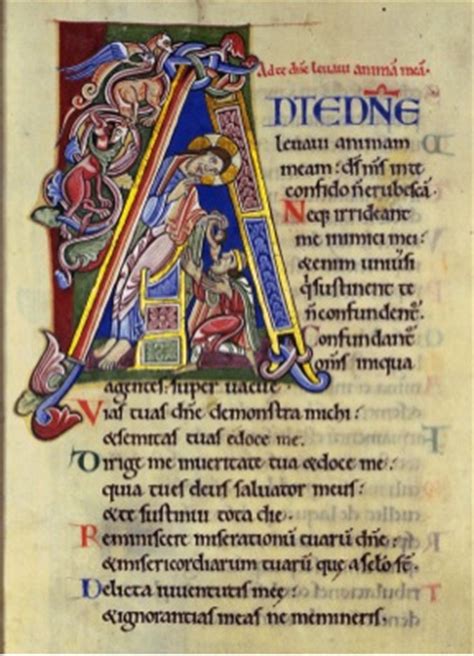 Ad te dñe leuaui animā meā.
ADTEDÑE
leuaui animam
meam: ds̄ ms̄ inte
confido ñ erubescā.
Neq; irrideant
me inimici mei:
&enim uniusi
q̇ sustinent te
ñ confundent̄.
Confundant̄
om̄s iniqua
agentes: super uacue.
Vias tuas dñe demonstra michi:
&semitas tuas edoce me.
Dirige me inueritate tua &doce me:
quia tues deus saluator meus:
&te sustinui tota die.
Reminiscere miserationū tuarū dñe:
&misericordiarum tuarū que aselo st̄.
Delicta iuuentutis meę:
&ignorantias meas ne memineris.